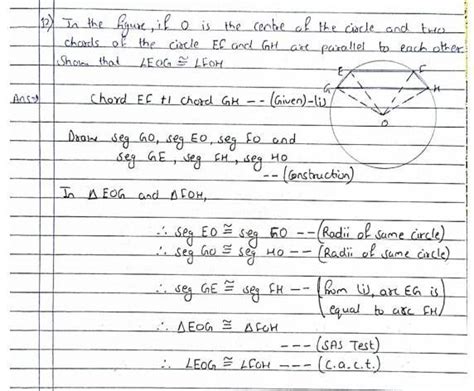 12) In the figure, if O is the centre of the circle and two
chords of the circle EF and GH are parallel to each other
Show that ∠EOG ≅ ∠FOH
E F
G H
O
Ans→ Chord EF || chord GH -- (Given) - (i)
Draw seg GO, seg EO, seg FO and
seg GE, seg FH, seg HO
-- (Construction)
In ΔEOG and ΔFOH,
∴ seg EO ≅ seg FO -- (Radii of same circle)
∴ seg GO ≅ seg HO -- (Radii of same circle)
∴ seg GE ≅ seg FH -- (from (i), arc EG is
equal to arc FH)
∴ ΔEOG ≅ ΔFOH
--- (SAS Test)
∴ ∠EOG ≅ ∠FOH --- (C.a.c.t.)